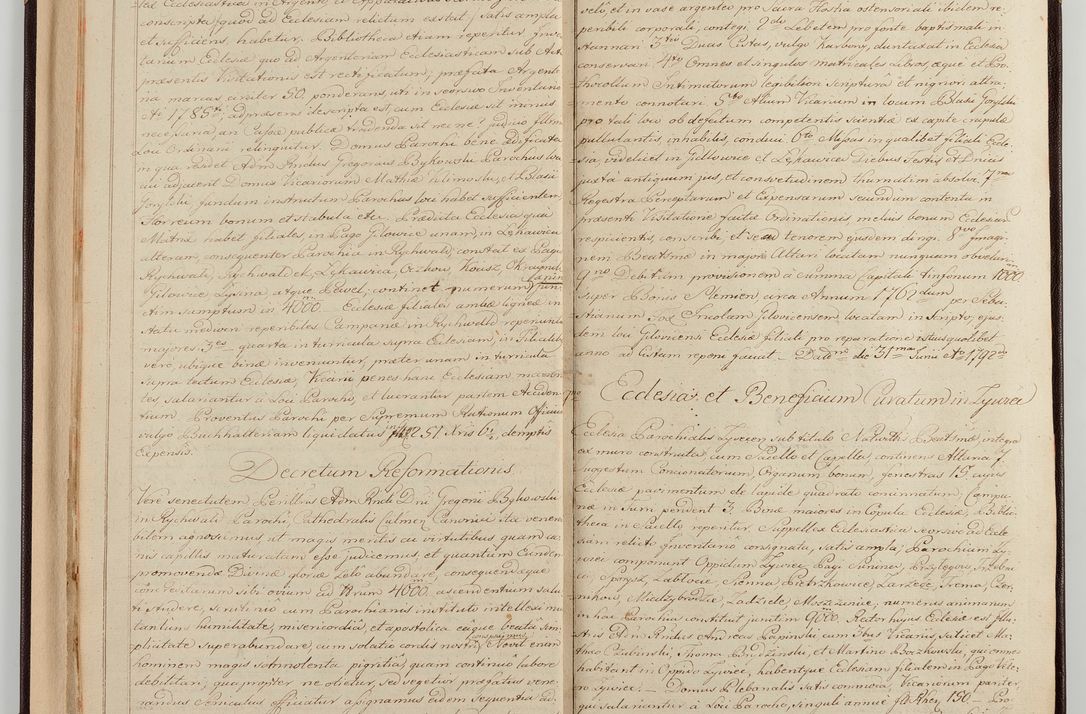 sed Ecclesiastica in Argento, et Apparatibus
conscripta quod ad Ecclesiam relictum extat; satis ampla
et sufficiens, habetur. Bibliotheca etiam reperitur Inven
tarium Ecclesiæ quo ad Argenteriam Ecclesiasticam sub Actu
præsentis Visitationis est rectificatum, præfata Argente
ria marcas circiter 50. ponderans, uti in recenso Inventario
Ao 1785to, ad præsens descripta est, cum Ecclesiæ sit minus
necessaria, an Cassæ publicæ tradenda sit nec ne? judicio Illmi
Loci Ordinarii relinquitur. Domus Parochi bene ædificata
in qua residet Adm Rndus Gregorius Bykowski Parochus lo
ci adjacent Domus Vicariorum Mathiæ Klimoski, et Blasii
Gorylski, fundum instructum Parochus loci habet sufficientem,
Horreum bonum et stabula etc. Prædicta Ecclesia qua
Matrix habet filiales, in Pago Gilowice unam, in Łękawica
alteram, consequenter Parochia in Rychwałd, constat ex Pagis
Rychwałd, et Łękawica, Oczkow, Kocusz, Okraynik
Gilowice, Łysina, atque Pewel, continet numerum
ctim sumptum in 4000. Ecclesiæ filiales ambæ ligneæ in
statu mediocri reperibiles Campanæ in Rychwałd reperiuntur
majores 3es quarta in turricula supra Ecclesiam, in Filialib
vero, ubique binæ inveniuntur, præter unam in turricula
supra tectum Ecclesiæ, Vicarii penes hanc Ecclesiam manen
tes, salariantur à Loci Parocho, et lucrantur partem Acciden
tium. Proventus Parochi per Supremum Rationum Officium
vulgo Buchhalteriam liquidatus 51 Xris 6 2/4 demptis
Expensis.
Decretum Reformationis.
Vere senectutem Perillris Adm Rndi Dni Gregorii Bykowski
in Rychwałd Parochi, Cathedralis Culmen. Canonici ita venera
bilem agnosimus, ut magis meritis ac virtutibus quam ca
nis capillis maturatam esse judicemus, et quantum Eundem
promovendæ Divinæ gloriæ zelo abundare, consequendæque
concreditarum sibi ovium ad Nrum 4000. ascendentium salu
ti studere, scrutinio cum Parochianis instituto intelleximus
tantum humilitate, misericordia, et apostolica eaque beata sim
plicitate superabundare, cum solatio cordis nostri conspeximus. Novit enim
hominem magis somnolenta pigritia, quam continuo labore
debilitari; qua propter ne otietur, sed vegetur præfatus vene
randus Canonicus officiatur assignamus eidem sequentia ad
veli, et in vase argenteo pro Sacra Hostia ostensoriali ibidem re
peribili corporali, contegi. 2do Lebetem pro fonte baptismali in
stannari. 3tio Duas Cistas, vulgo Karbony, duntaxat in Ecclesia
conservari. 4to Omnes et singulos matricales Libros, æque et Pro
thocollum Intimatorum legibiliori Scriptura et nigriori attra
mento connotari. 5to Alium Vicarium in locum Blasii Goryliski
pro tali loci ob defectum competentis scientiæ ex capite crapulæ
pullulantis, inhabilis, conduci. 6to Missas in qualibet filiali Eccle
sia, videlicet in Gillowice et Łękawice Diebus Festis et Dnicis
juxta antiquum jus, et consvetudinem turmatim absolvi. 7mo
Regestra Perceptarum et Expensarum secundum contenta in
præsenti Visitatione factæ Ordinationis melius bonum Ecclesiæ
respicientis, conscribi, et se ad tenorem ejusdem dirigi. 8vo Imagi
nem Beatissmæ in majori Altari locatam nunquam obvelari.
9no Debitam provisionem à summa Capitali Tinfonum 1000
super Bonis Slemien, circa Annum 1761dum per Seba
stianum Incolam Gilowicensem locatam in Scripto, ejus
dem loci Gilovicensi Ecclesiæ filiali pro reparatione istius quolibet
anno ad Cistam reponi faciat. Datt die 31ma Junii Ao 1792do
Ecclesia et Beneficium Curatum in Zywiec
Ecclesia Parochialis Zyvecen. sub titulo Nativitis Beatismæ, integra
ex muro constructa, cum Sacello et Capella, continens Altaria 7
Suggestum Concionatorium, Organum bonum, fenestras 19. cujus
Ecclesiæ pavimentum de lapide quadrato concinnatum; Campa
næ in Sum. pendent 3, Binæ maiores in Copula Ecclesiæ, Biblio
theca in Sacello reperitur. Suppellex Ecclesiastica seorsive ad Eccle
siam relicto Inventario consignata, satis ampla; Parochiam Zy
viecen. component Oppidum Zywiec, Pagi
ca, Sporysz, Zabłocie, Sienna Pietrzykowice, Zarzecze, Tresna, Czer
nichow, Miedzybrodzie, Zadziele, Moszczanice, numerus animarum
in hac Parochia constitut. junctim 9600. Rector hujus Ecclesiæ est Illu
stris Adm. Rndus Andreas Papinski cum tribus Vicariis, scilicet Ma
theo Czulinski, Thoma Budzinski, et Martino Barzkowski, qui omnes
habitant in Oppido Zywiec, habentque Ecclesiam filialem in Pago Vete
ro Zywiec. Domus Plebanalis satis commoda, Vicariorum pariter,
qui salariantur à Loci Parocho, singuli annue flRhen. 150. Pro